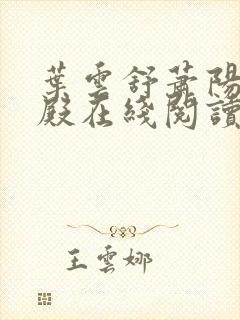 葉雲舒蕭陽
殿在綫閱讀
王雲娜